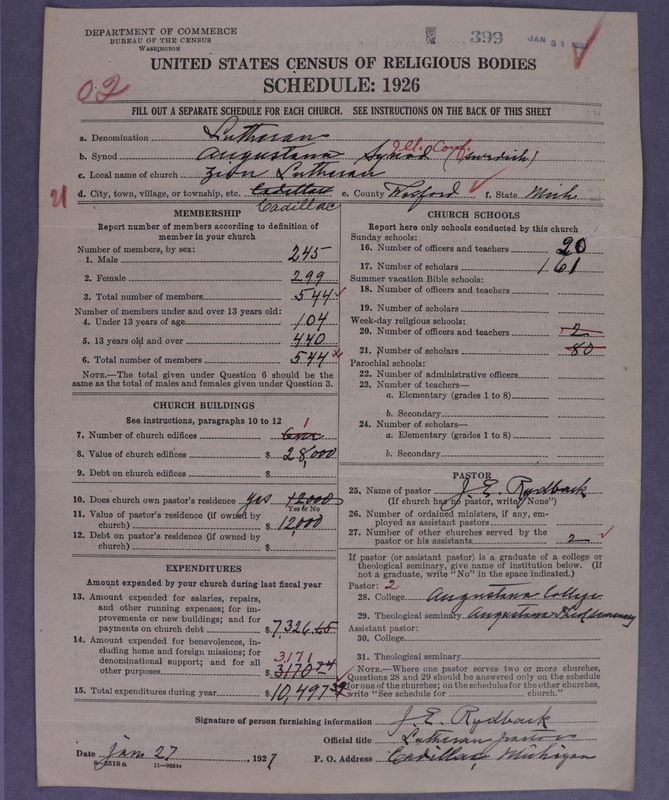 DEPARTMENT OF COMMERCE
BUREAU OF THE CENSUS
WASHINGTON
399
JAN 31
UNITED STATES CENSUS OF RELIGIOUS BODIES
SCHEDULE: 1926
02
FILL OUT A SEPARATE SCHEDULE FOR EACH CHURCH. SEE INSTRUCTIONS ON THE BACK OF THIS SHEET
a. Denomination Lutheran
b. Synod Augustana Synod (Swedish) Ill. Conf.
c. Local name of church Zion Lutheran
d. City, town, village, or township, etc. Cadillac e. County Wexford f. State Mich
Cadillac
MEMBERSHIP
Report number of members according to definition of
member in your church
Number of members, by sex:
1. Male 245
2. Female 299
3. Total number of members 544
Number of members under and over 13 years old:
4. Under 13 years of age 104
5. 13 years old and over 440
6. Total number of members 544
NOTE.—The total given under Question 6 should be the
same as the total of males and females given under Question 3.
CHURCH BUILDINGS
See instructions, paragraphs 10 to 12
7. Number of church edifices one 1
8. Value of church edifices $ 28,000
9. Debt on church edifices $
10. Does church own pastor's residence yes 12000
Yes or No
11. Value of pastor's residence (if owned by
church) $ 12,000
12. Debt on pastor's residence (if owned by
church) $
EXPENDITURES
Amount expended by your church during last fiscal year
13. Amount expended for salaries, repairs,
and other running expenses; for im-
provements or new buildings; and for
payments on church debt $ 7326.65
14. Amount expended for benevolences, in-
cluding home and foreign missions; for
denominational support; and for all
other purposes $ 3170 74
3171
15. Total expenditures during year $ 10,497 39
CHURCH SCHOOLS
Report here only schools conducted by this church
Sunday schools:
16. Number of officers and teachers 20
17. Number of scholars 161
Summer vacation Bible schools:
18. Number of officers and teachers
19. Number of scholars
Week-day religious schools:
20. Number of officers and teachers 2
21. Number of scholars 80
Parochial schools:
22. Number of administrative officers
23. Number of teachers—
a. Elementary (grades 1 to 8)
b. Secondary
24. Number of scholars—
a. Elementary (grades 1 to 8)
b. Secondary
PASTOR
25. Name of pastor J. E. Rydback
(If church has no pastor, write "None")
26. Number of ordained ministers, if any, em-
ployed as assistant pastors
27. Number of other churches served by the
pastor or his assistants 2
If pastor (or assistant pastor) is a graduate of a college or
theological seminary, give name of institution below. (If
not a graduate, write "No" in the space indicated.)
Pastor: 2
28. College Augustana College
29. Theological seminary Augustana Theol seminary
Assistant pastor:
30. College
31. Theological seminary
NOTE.—Where one pastor serves two or more churches,
Questions 28 and 29 should be answered only on the schedule
for one of the churches; on the schedules for the other churches,
write "See schedule for church."
Signature of person furnishing information J. E. Rydback
Official title Lutheran pastor
Date Jan 27, 1927 P. O. Address Cadillac, Michigan
11—9554